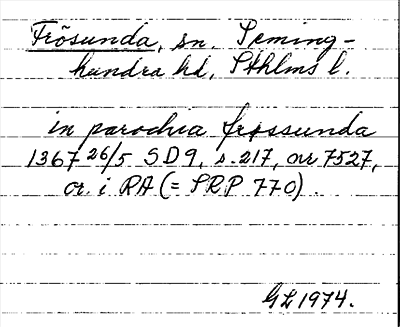 Frösunda, sn. Seming-
hundra hd, Sthlms l.
in parochia frøssunda
1367 26/5 SD 9, s. 217, nr 7527,
or. i RA (= SRP 770).
GL 1974.